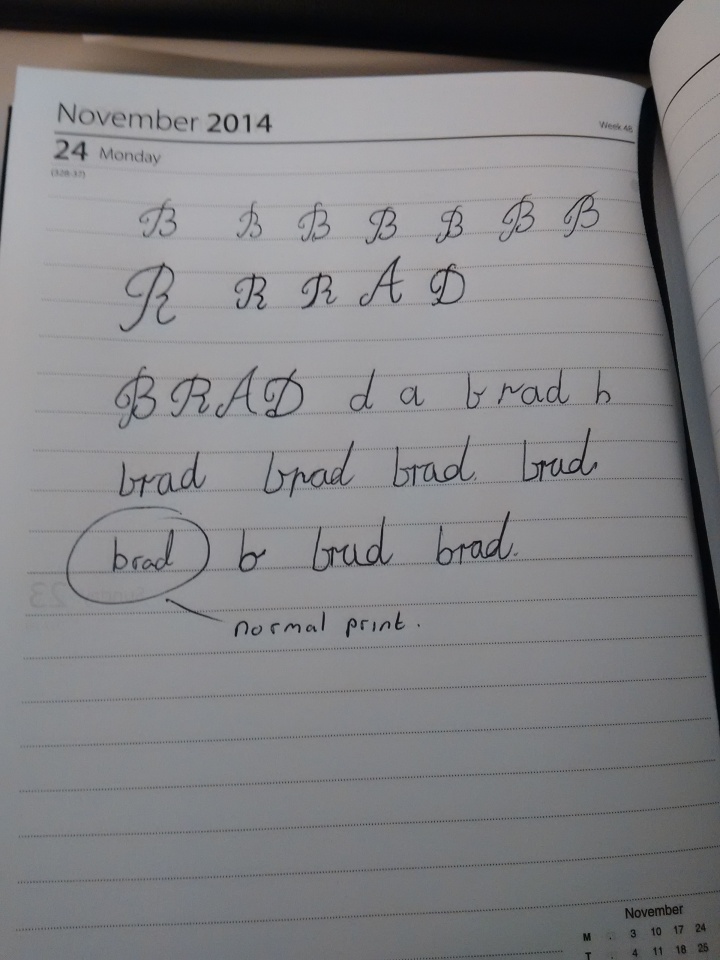 November 2014
Week 48
24 Monday
(328-37)
B B B B B B B
R R R A D
B R A D d a b r a d b
brad brad brad brad
brad b brad brad.
normal print.
23
November
M . 3 10 17 24
T . 4 11 18 25